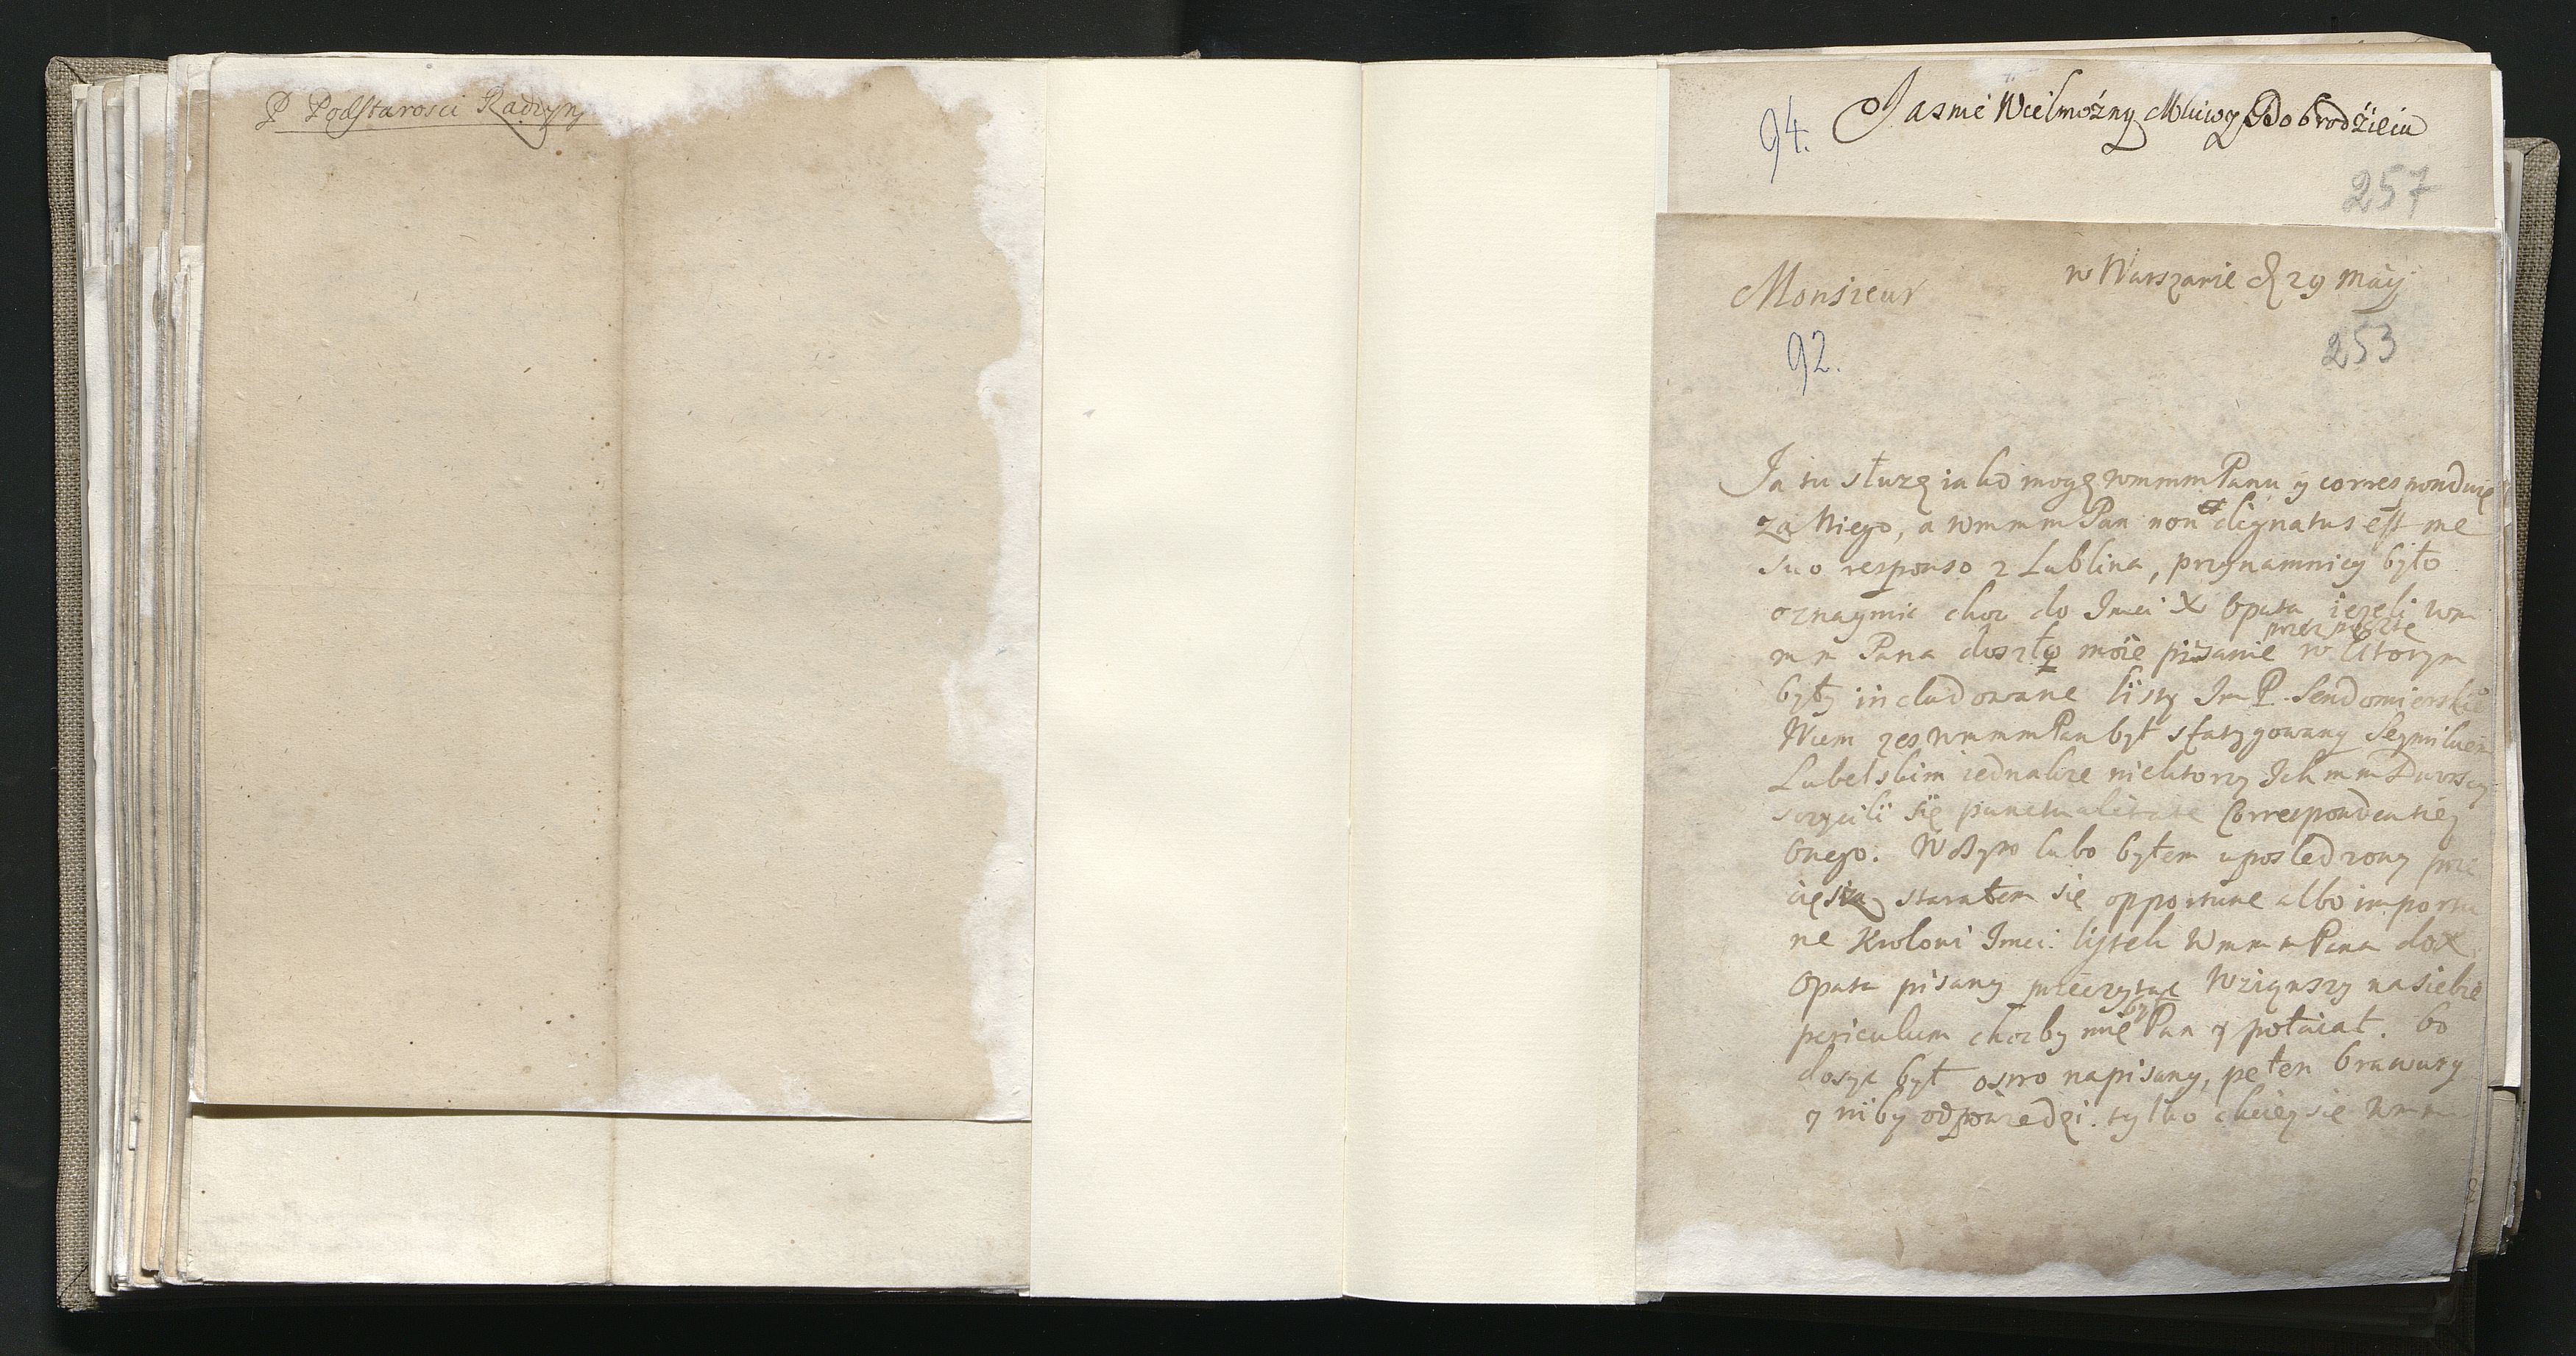 P Podstarosci Radzyn
94. Jasnie Wielmożny Mściwy Dobrodżieiu
257
w Warszawie d 29 maij
Monsieur
253
92.
Ja tu służę iako mogę wmmm Panu y corresponduię
za Niego, a wmmm Pan non est dignatus est me
suo responso z Lublina, przynamniey było
oznaymic choc do Imci X Opata ieżeli wm
przez posztę
mm Pana doszło moie pisanie w ktorym
były includowane listy Im P. Sendomierskie
Wiem żes wmmm Pan był sfatygowany Seymikiem
Lubelskim iednakże niektorzy Ich mm Dworscy
się punctualitate Correspondentiey
onego. W Bzyw lubo byłem uposledzony prze
cięsz starałem się opportune albo importu
ne Krolowi Imci listek Wmmm Pana do X
Opata pisany przeczytac Wziąwszy na siebie
periculum chocby mię by Pan y połaiał. bo
dosyc był ostro napisany, pełen brawury
y niby odpowiedzi. tylko chciey sie Wmm